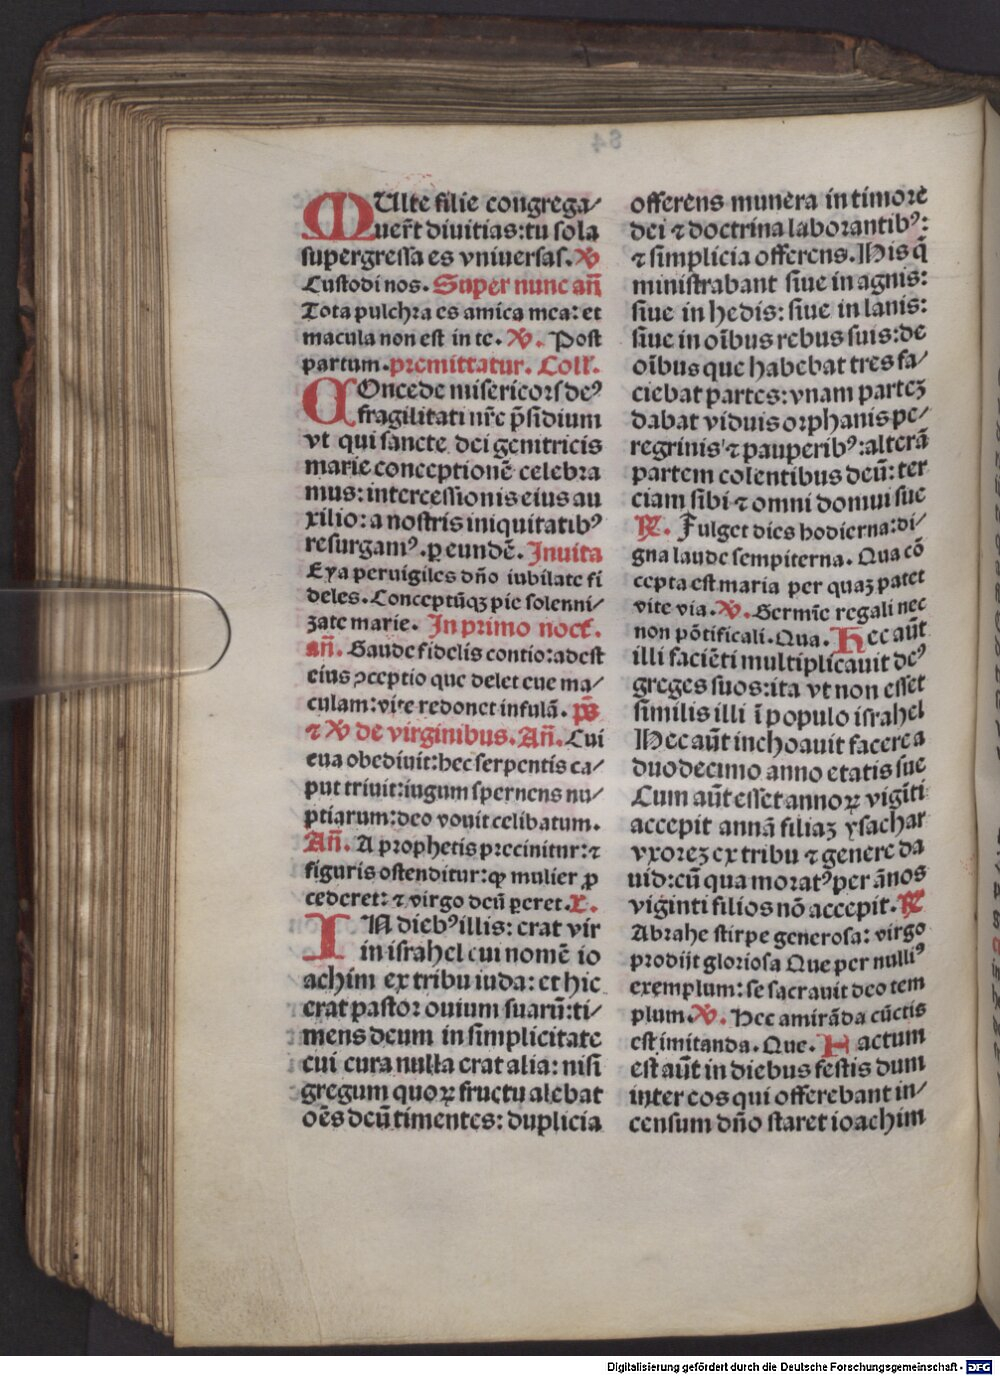 MUlte filie congrega⸗
uer̄t diuitias: tu sola
supergressa es vniuersas. ℣
Custodi nos. Super nunc an̄
Tota pulchra es amica mea: et
macula non est in te. ℣. Post
partum. premittatur. Coll̄.
COncede misericors deꝰ
fragilitati nr̄e p̄sidium
vt qui sancte dei genitricis
marie conceptionē celebra
mus: intercessionis eius au
xilio: a nostris iniquitatibꝰ
resurgamꝰ. ꝑ eundē. Inuita
Eya peruigiles dn̄o iubilate fi
deles. Conceptūqꝫ pie solenni⸗
zate marie. In primo noct̄.
an̄. Gaude fidelis contio: adest
eius ꝯceptio que delet eue ma⸗
culam: vite redonet infulā. p̄s
⁊ ℣ de virginibus. An̄. Cui
eua obediuit: hec serpentis ca⸗
put triuit: iugum spernens nu⸗
ptiarum: deo vouit celibatum.
An̄. A prophetis precinitur: ⁊
figuris ostenditur: ꝙ mulier ꝓ
cederet: ⁊ virgo deū ꝑeret. ꝶ.
IN diebꝰ illis: erat vir
in israhel cui nomē io
achim ex tribu iuda: et hic
erat pastor ouium suarū: ti⸗
mens deum in simplicitate
cui cura nulla erat alia: nisi
gregum quoꝝ fructu alebat
oēs deū timentes: duplicia
offerens munera in timore
dei ⁊ doctrina laborantibꝰ:
⁊ simplicia offerens. His q̄
ministrabant siue in agnis:
siue in hedis: siue in lanis:
siue in oībus rebus suis: de
oībus que habebat tres fa⸗
ciebat partes: vnam partez
dabat viduis orphanis pe⸗
regrinis ⁊ pauperibꝰ: alterā
partem colentibus deū: ter
ciam sibi ⁊ omni domui sue
℟. Fulget dies hodierna: di⸗
gna laude sempiterna. Qua cō
cepta est maria per quaz patet
vite via. ℣. Germīe regali nec
non pōtificali. Qua. Hec aūt
illi faciēti multiplicauit deꝰ
greges suos: ita vt non esset
similis illi ī populo israhel
Hec aūt inchoauit facere a
duodecimo anno etatis sue
Cum aūt esset annoꝝ vigīti
accepit annā filiaz ysachar
vxorez ex tribu ⁊ genere da
uid: cū qua moratꝰ per ānos
viginti filios nō accepit. ℟
Abrahe stirpe generosa: virgo
prodijt gloriosa Que per nulliꝰ
exemplum: se sacrauit deo tem
plum. ℣. Hec amirāda cūctis
est imitanda. Que. Factum
est aūt in diebus festis dum
inter eos qui offerebant in⸗
censum dn̄o staret ioachim
Digitalisierung gefördert durch die Deutsche Forschungsgemeinschaft - DFG